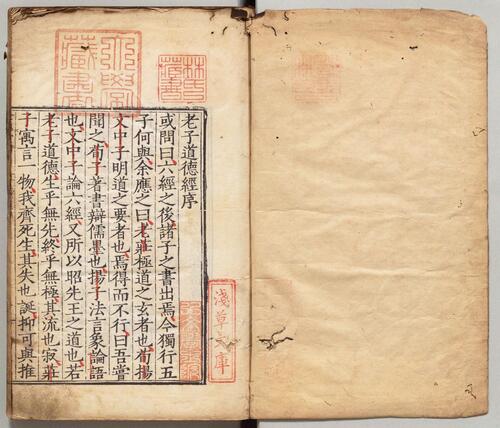 老子道德經序
或問曰六經之後諸子之書出焉今獨行五
子何與余應之曰老莊極道之玄者也荀揚
文中子明道之要者也焉得而不行曰吾嘗
聞之荀子著書辯儒墨也揚子法言象論語
也文中子論六經又所以昭先王之道也若
老子道德生乎無先終乎無極其流也寂莊
子寓言一物我齊死生其失也誕抑可與推
林氏藏書
淺草文庫